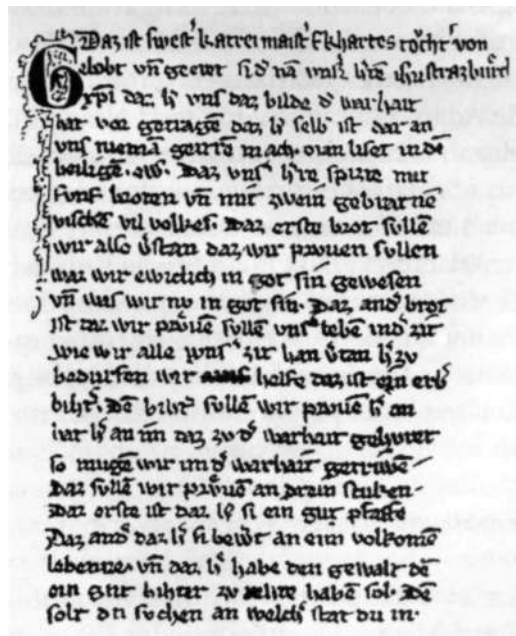 Daz ist swest' katrei maist' Ekhartes tocht' von
Gelobt vñ geert si d' nã uns's h're ihu strazburg
xpi daz h' vns daz bilde d' warhait
hat vor getragẽ daz h' selb ist dar an
vns niemã geirrẽ mach man liset in dẽ
heiligẽ ew͂. Daz vns' h're spizte mit
funf broten vñ mit zwein gebraten
vischen vil volkes. Daz erste brot sullẽ
wir also v'stan daz wir prouen sullen
waz wir ewiclich in got sin gewesen
vñ waz wir nv in got sin. Daz and' brot
ist daz wir prouẽ sullẽ vns' lebẽ vnd zit
wie wir alle vns' zit han v'tan h' zv
bedurfen wir helfe daz ist ein erb'
biht'. Dẽ biht' sullẽ wir prouẽ h' an
hat h' an im daz zv d' warhait gehoret
so mugẽ wir im d' warhait getruwẽ
Daz sullẽ wir prouẽ an drein stuken
Daz erste ist daz h' si ein gut pfaffe
Daz and' daz h' si bewt an eim volkomẽ
lebenne vñ daz h' habe den gewalt dẽ
ein gut bihter zv rehte habẽ sol. Dẽ
solt du suchen an welch' stat du in